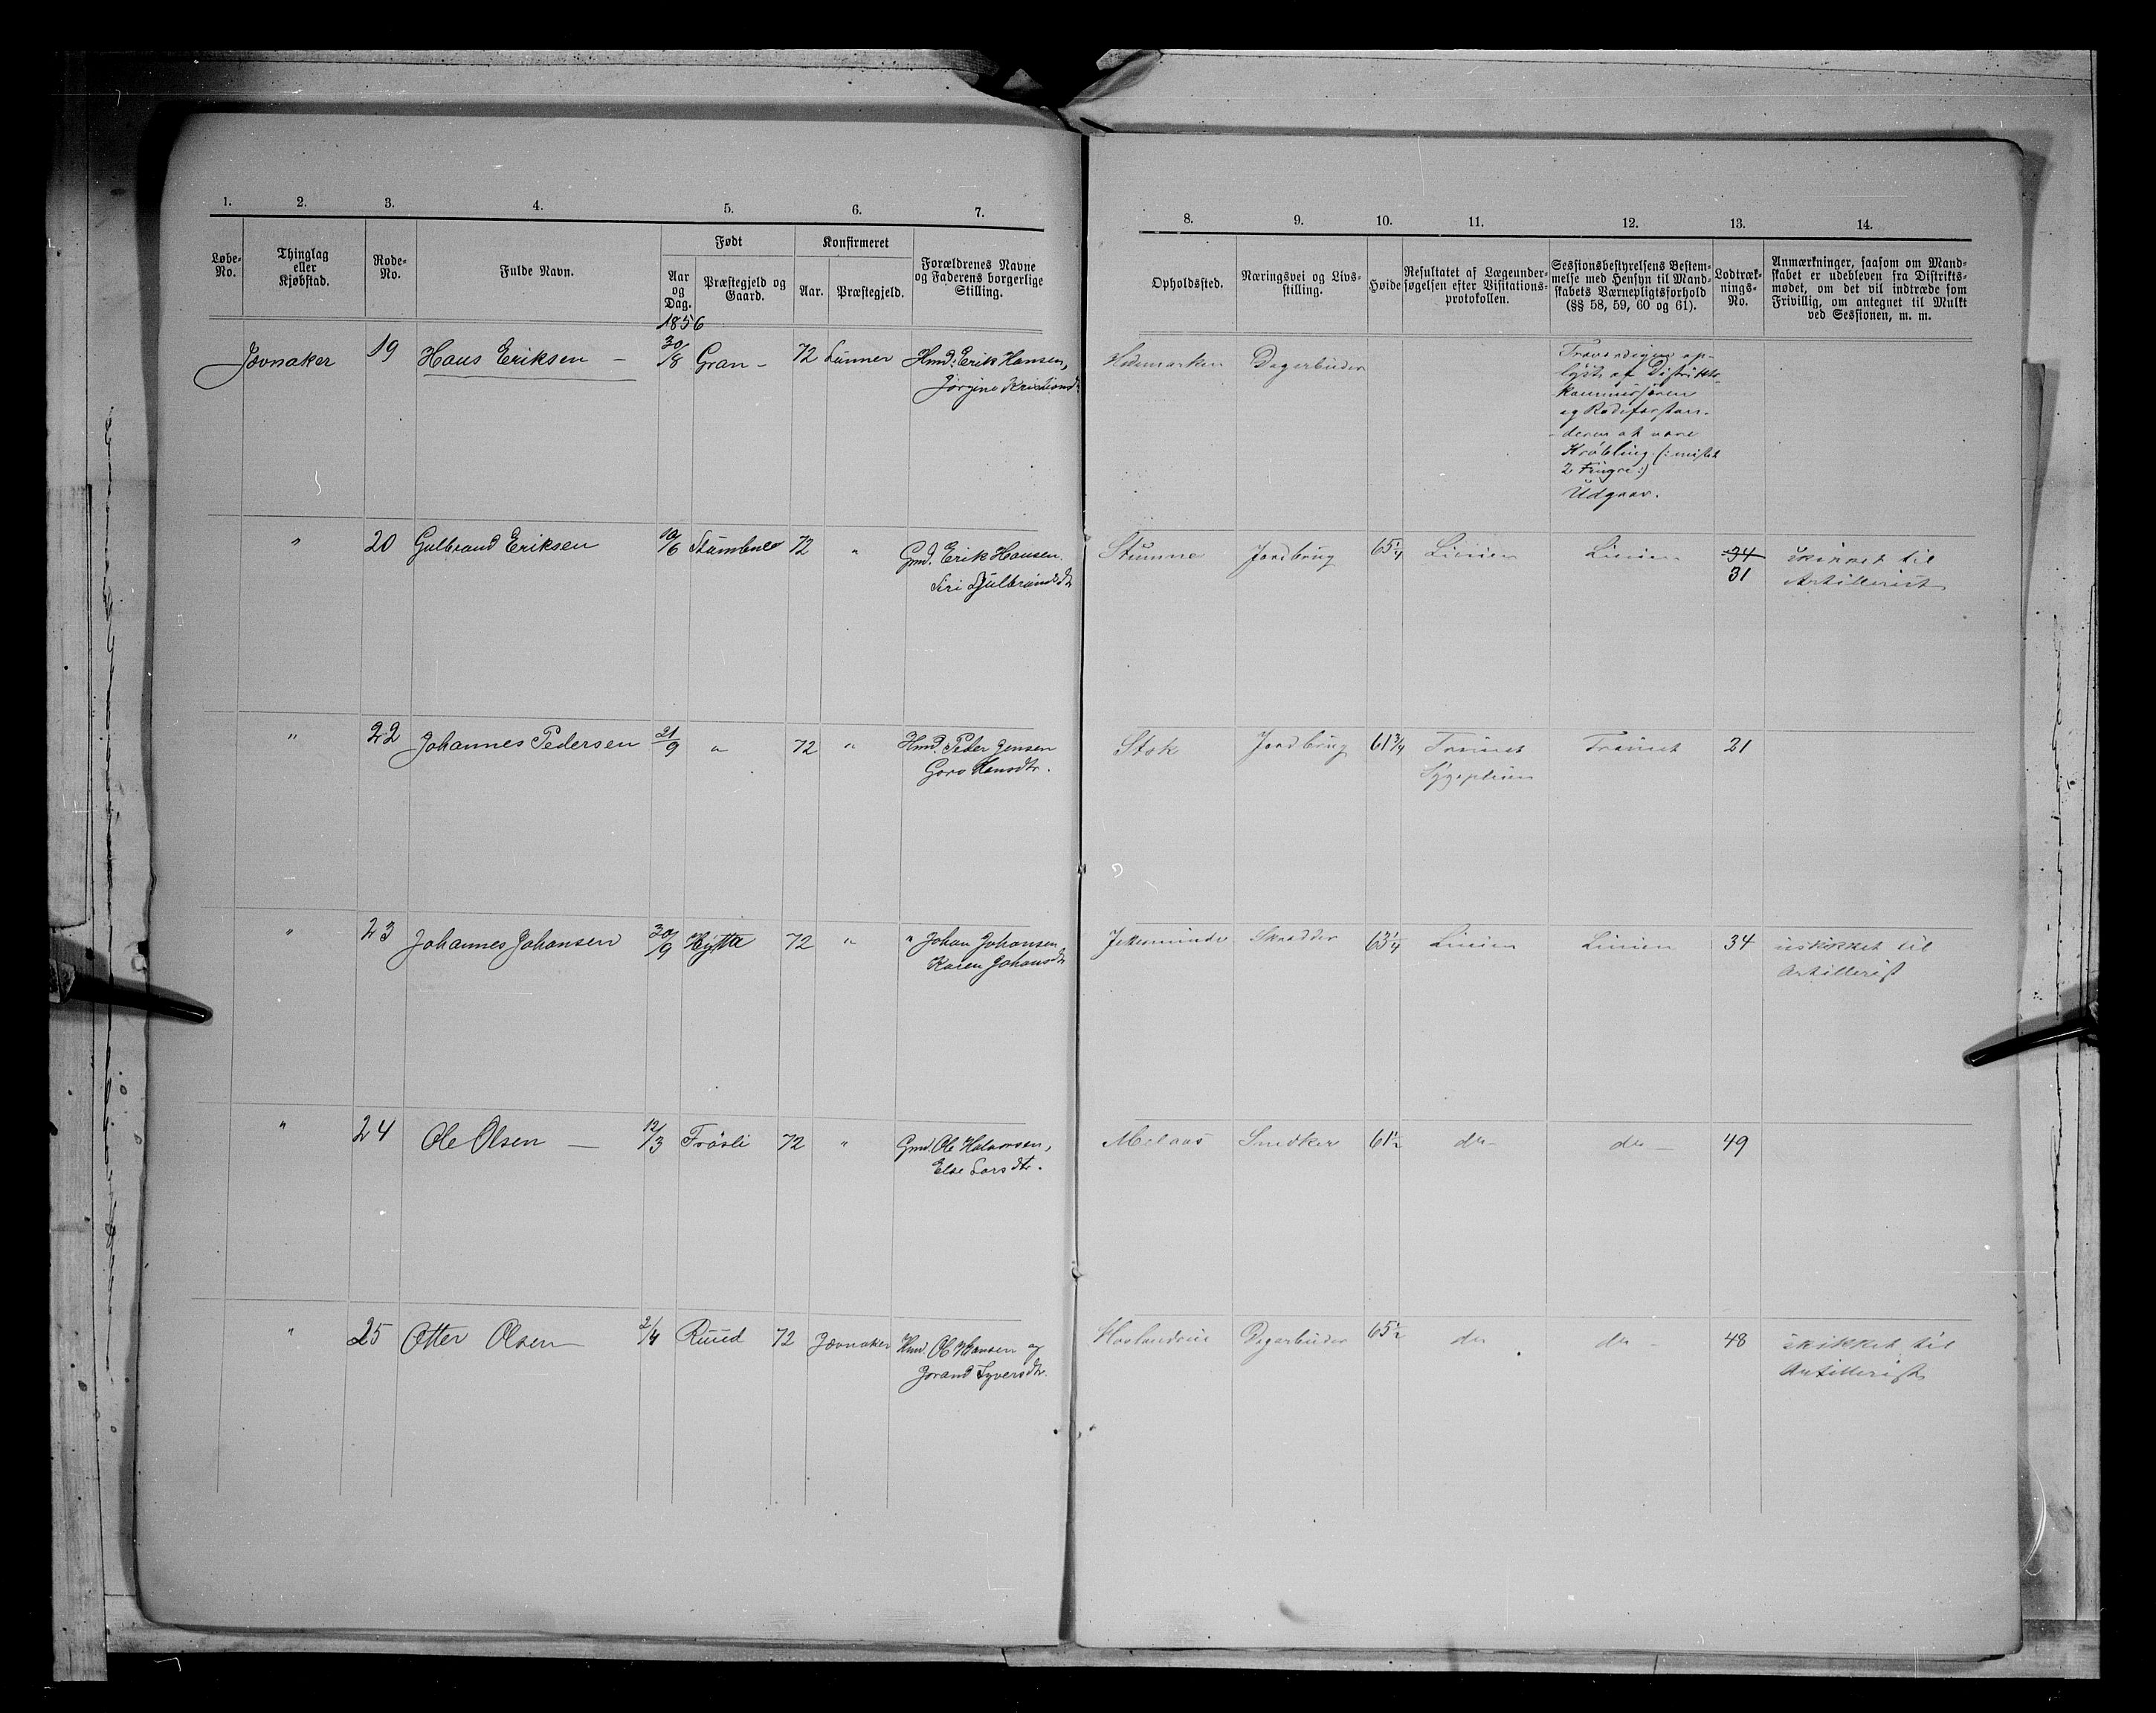 1. 2. 3. 4. 5. 6. 7.
Løbe-No. Thinglag eller Kjøbstad. Rode-No. Fulde Navn. Født Aar og Dag. Præstegjeld og Gaard. Konfirmeret Aar. Præstegjeld. Forældrenes Navne og Faderens borgerlige Stilling.
1856
Jevnaker 19 Hans Eriksen — 30/8 Gran - 72 Lunner Hmd. Erik Hansen,
Jørgine Kristiansd.
" 20 Gulbrand Eriksen 10/6 Stumbne 72 " Gmd. Erik Hansen
Siri Gulbrandsdtr
" 22 Johannes Pedersen 21/9 " 72 " Hmd. Peder Jensen
Goro Hansdtr.
" 23 Johannes Johansen 30/9 Hytta 72 " " Johan Johansen
Karen Johansdtr
" 24 Ole Olsen — 12/3 Frøsli 72 " Gmd. Ole Halvorsen,
Else Larsdtr.
" 25 Otter Olsen 2/4 Ruud 72 Jevnaker Hmd. Ole Hansen og
Jorand Syversdtr.
8. 9. 10. 11. 12. 13. 14.
Opholdssted. Næringsvei og Livsstilling. Høide Resultatet af Lægeundersøgelsen efter Visitationsprotokollen. Sessionsbestyrelsens Bestemmelse med Hensyn til Mandskabets Værnepligtsforhold (§§ 58, 59, 60 og 61). Lodtræknings-No. Anmærkninger, saasom om Mandskabet er udebleven fra Distriktsmødet, om det vil indtræde som Frivillig, om antegnet til Mulkt ved Sessionen, m. m.
Hedemarken Dagarbeider Fraværdigen op-
lyst af Distrikts-
kommissæren
og Rodeforstan-
deren at være
Krøbling (: mistet
2 Fingre :)
Udgaar.
Stumne Jordbrug 65 1/4 Linien Linien 34
31 skikket til
Artillerist
Stok Jordbrug 61 3/4 Trainet Trainet 21
Sygepleien
Skrædder 63 1/4 Linien Linien 34 uskikket til
Artillerist
Melaas Snedker 61 1/2 do - do - 49
Dagarbeider 65 1/2 do do - 48 skikket til
Artillerist